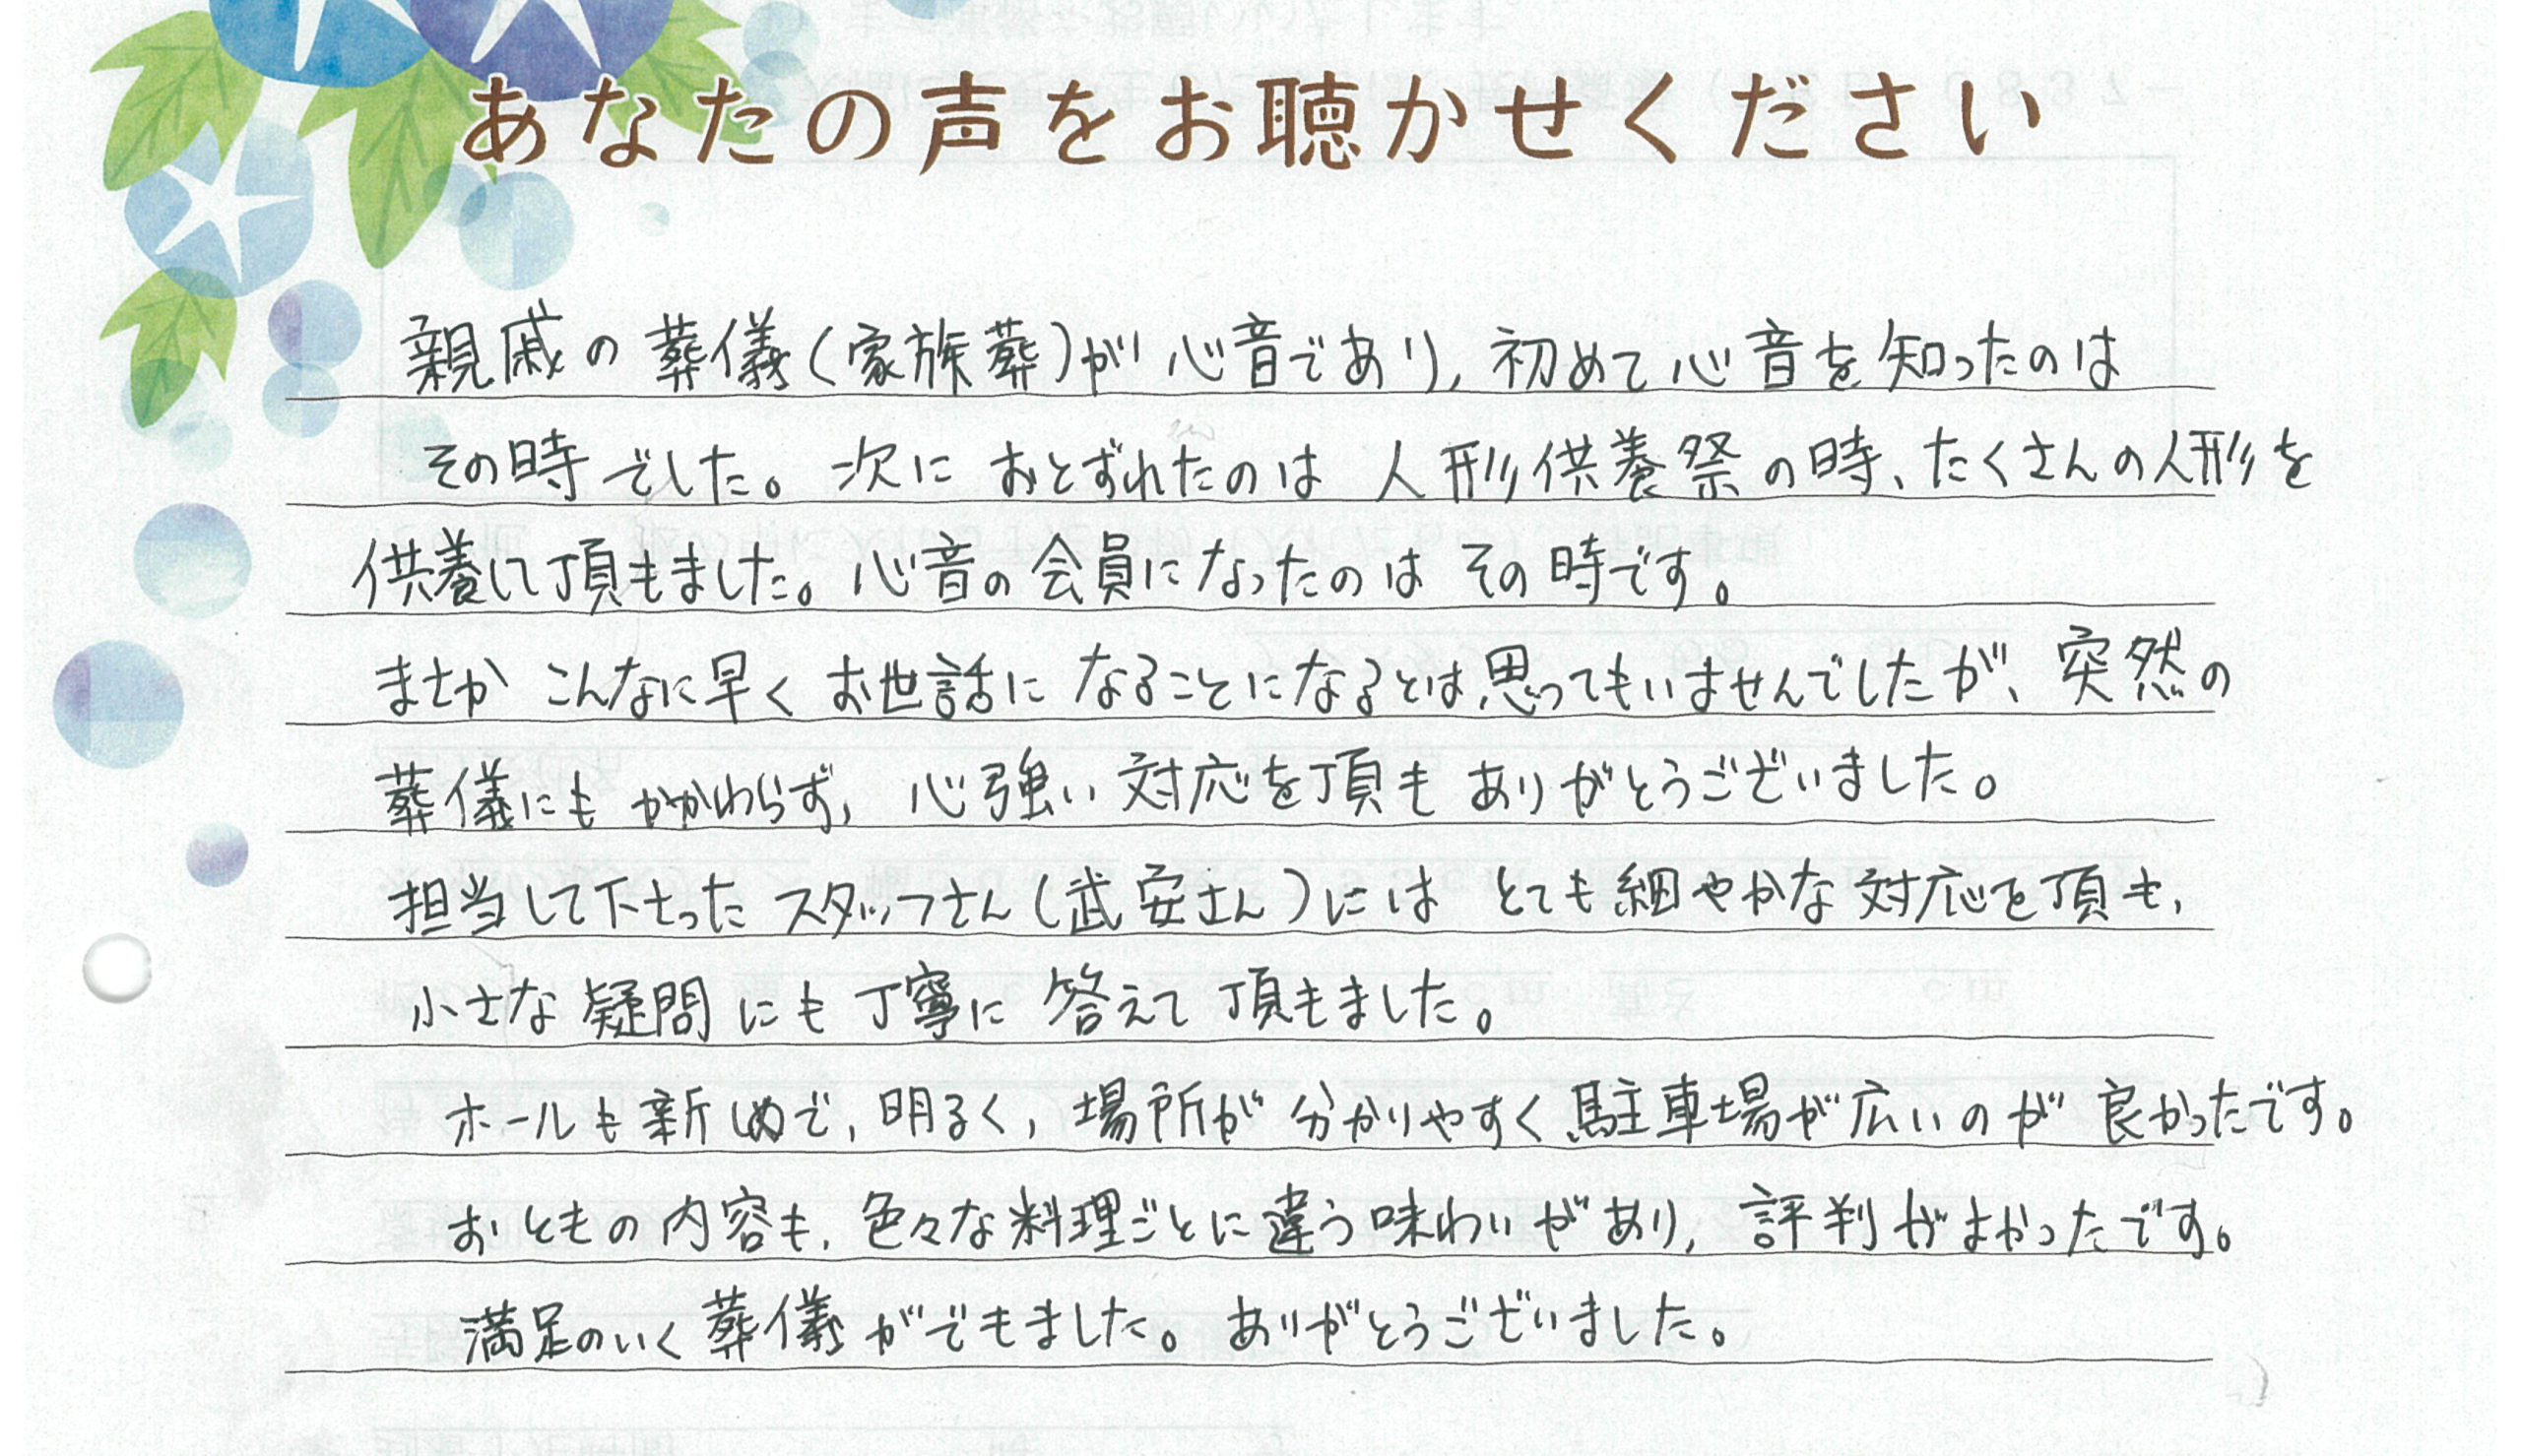 あなたの声をお聴かせください
親戚の葬儀(家族葬)が心音であり、初めて心音を知ったのは
その時でした。次におとずれたのは人形供養祭の時、たくさんの人形を
供養して頂きました。心音の会員になったのはその時です。
まさかこんなに早くお世話になることになるとは、思ってもいませんでしたが、突然の
葬儀にもかかわらず、心強い対応を頂きありがとうございました。
担当して下さったスタッフさん(武安さん)にはとても細やかな対応を頂き、
小さな疑問にも丁寧に答えて頂きました。
ホールも新しめで、明るく、場所が分かりやすく、駐車場が広いのが良かったです。
おときの内容も、色々な料理ごとに違う味わいがあり、評判がよかったです。
満足のいく葬儀ができました。ありがとうございました。